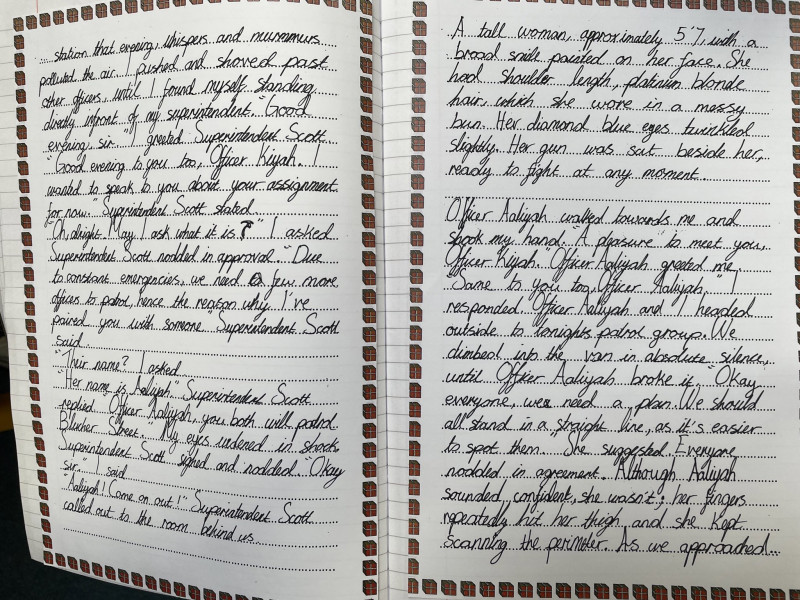 ...station that evening. Whispers and murmurs
polluted the air. I pushed and shoved past
other officers, until I found myself standing
directly infront of my superintendent. "Good
evening, sir." I greeted Superintendent Scott.
"Good evening to you too, Officer Kiyah. I
wanted to speak to you about your assignment
for now." Superintendent Scott stated.
"Oh, alright. May I ask what it is?" I asked.
Superintendent Scott nodded in approval. "Due
to constant emergencies, we need a few more
officers to patrol, hence the reason why I've
paired you with someone." Superintendent Scott
said.
"Their name?" I asked.
"Her name is Aaliyah." Superintendent Scott
replied. "Officer Aaliyah, you both will patrol
Blucher Street." My eyes widened in shock.
Superintendent Scott sighed and nodded. "Okay
sir." I said.
"Aaliyah! Come on out!" Superintendent Scott
called out to the room behind us.
A tall woman, approximately 5'7, with a
broad smile painted on her face. She
had shoulder length, platinum blonde
hair, which she wore in a messy
bun. Her diamond blue eyes twinkled
slightly. Her gun was sat beside her,
ready to fight at any moment.
Officer Aaliyah walked towards me and
shook my hand. "A pleasure to meet you,
Officer Kiyah." Officer Aaliyah greeted me.
"Same to you too, Officer Aaliyah." I
responded. Officer Aaliyah and I headed
outside to tonights patrol group. We
climbed into the van in absolute silence,
until Officer Aaliyah broke it. "Okay
everyone, we need a plan. We should
all stand in a straight line, as it's easier
to spot them." She suggested. Everyone
nodded in agreement. Although Aaliyah
sounded confident, she wasn't; her fingers
repeatedly hit her thigh and she kept
scanning the perimeter. As we approached...